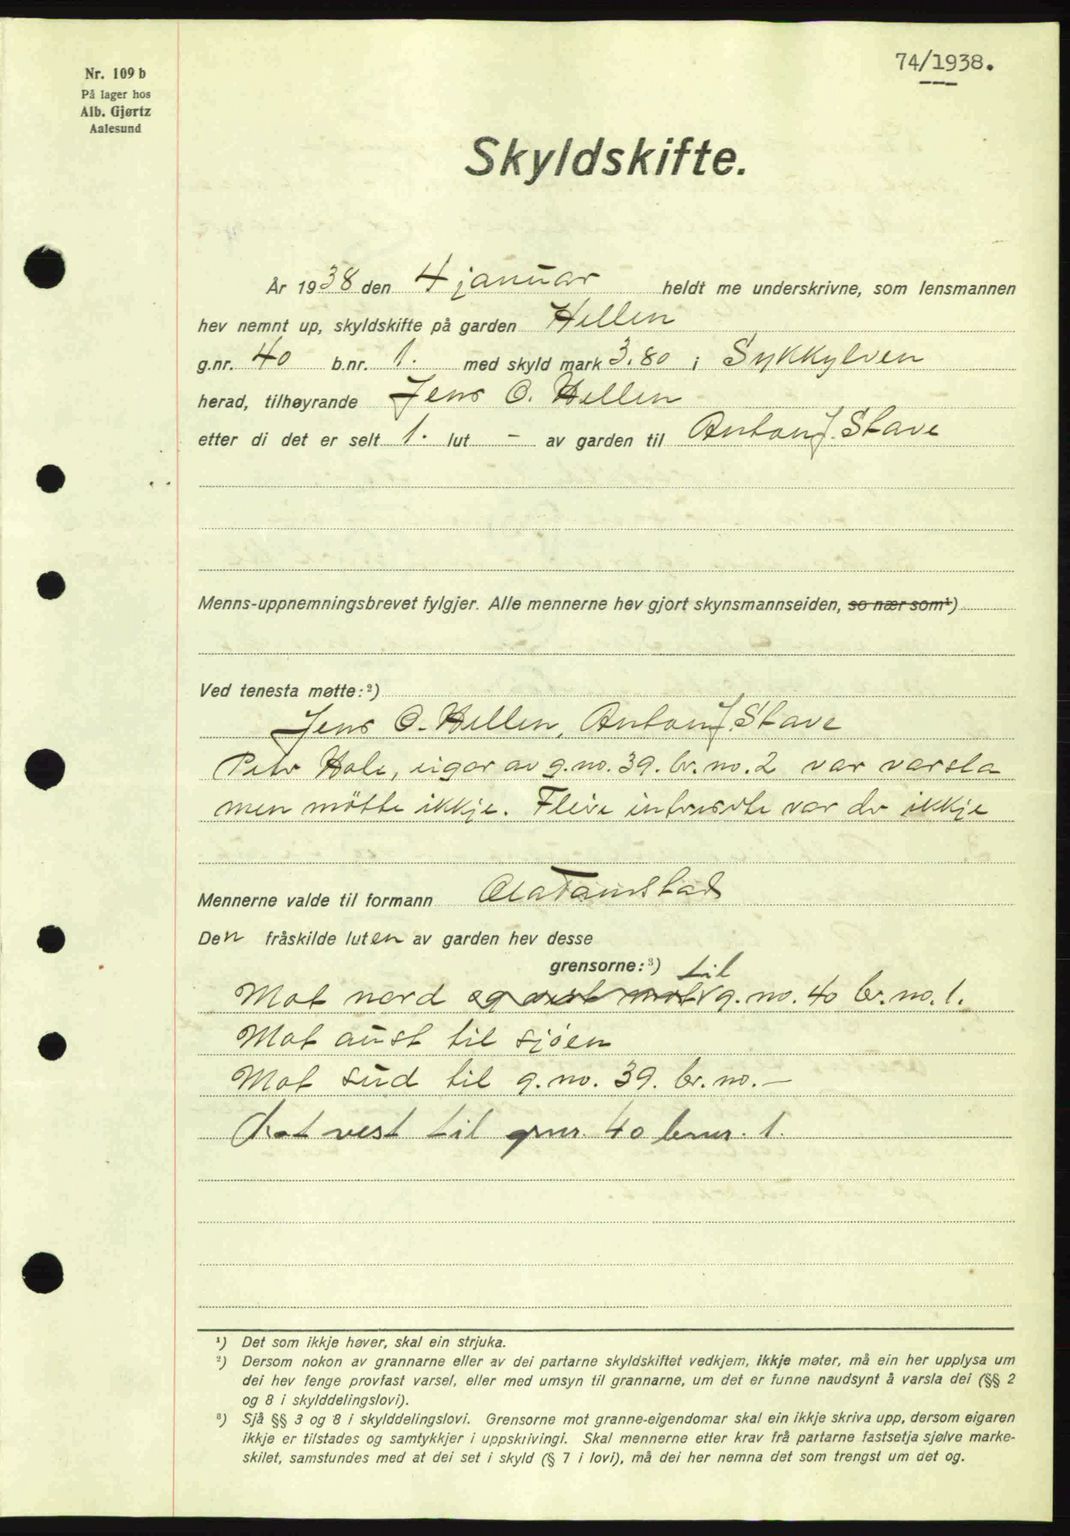 74/1938.
Nr. 109 b
På lager hos
Alb. Gjørtz
Aalesund
Skyldskifte.
År 1938 den 4 januar heldt me underskrivne, som lensmannen
hev nemnt up, skyldskifte på garden Hellen
g.nr. 40 b.nr. 1. med skyld mark 3.80 i Sykkylven
herad, tilhøyrande Jens O. Hellen
etter di det er selt 1. lut - av garden til Anton J. Stave
Menns-uppnemningsbrevet fylgjer. Alle mennerne hev gjort skynsmannseiden, so nær som¹)
Ved tenesta møtte:²)
Jens O. Hellen, Anton J. Stave
Petr Hole, eigar av g.no. 39. br.no. 2 var varsla
men mötte ikkje. Fleire intreserte var der ikkje
Mennerne valde til formann Ola Tandstad
Den fråskilde luten av garden hev desse
grensorne:³)
Mot nord og aust mot til g.no. 40 br.no. 1.
Mot aust til sjöen
Mot sud til g.no. 39. br.no. —
Mot vest til gnr. 40 bnr. 1.
¹) Det som ikkje høver, skal ein strjuka.
²) Dersom nokon av grannarne eller av dei partarne skyldskiftet vedkjem, ikkje møter, må ein her upplysa um
dei hev fenge provfast varsel, eller med umsyn til grannarne, um det er funne naudsynt å varsla dei (§§ 2
og 8 i skylddelingslovi).
³) Sjå §§ 3 og 8 i skylddelingslovi. Grensorne mot granne-eigendomar skal ein ikkje skriva upp, dersom eigaren
ikkje er tilstades og samtykkjer i uppskrivingi. Skal mennerne etter krav frå partarne fastsetja sjølve marke-
skilet, samstundes med at dei set i skyld (§ 7 i lovi), må dei her nemna det som trengst um det og.